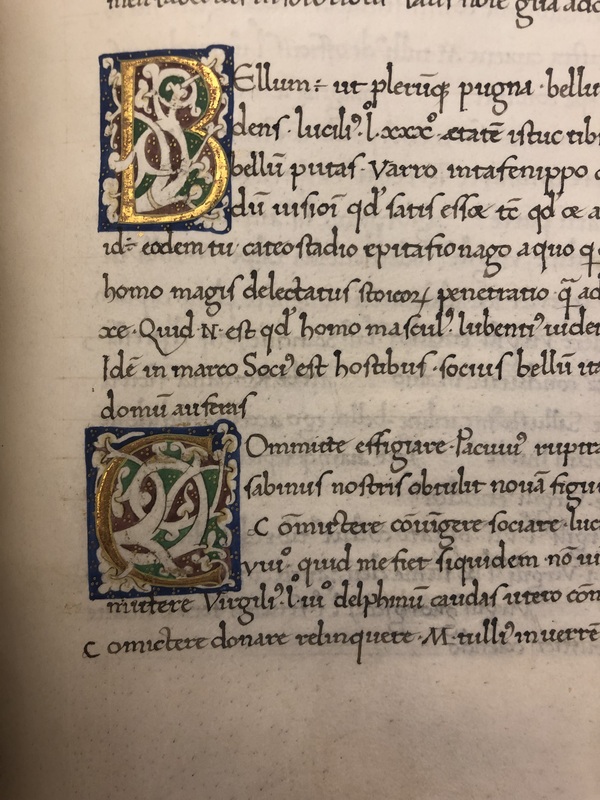 BEllum ÷ ut plerūqꝫ pugna · bellu
dens · luciliꝰ · l · xxxº · ætatē istuc tibi
bellū putas · Varro
dū qđ satis esse qđ
id÷ eodem tu cateo stadio epitafionago a quo
homo magis delectatus stoicoꝝ penetratio · q̄ ad
xe · Quid N · est qđ homo masculꝰ · lubentiꝰ uider
Idē in marco Sociꝰ est hostibus · socius bellū ita
domū auferas
COmmicte effigiare · Pacuuiꝰ rupta
sabinus nostris obtulit nouā figu
Cōmictere cōiūgere sociare · luc
quid me fiet siquidem nō
mittere Virgiliꝰ · l · iiiº delphinū caudas utero cōm
Comictere donare relinquere · M · tulliꝰ in uerrē